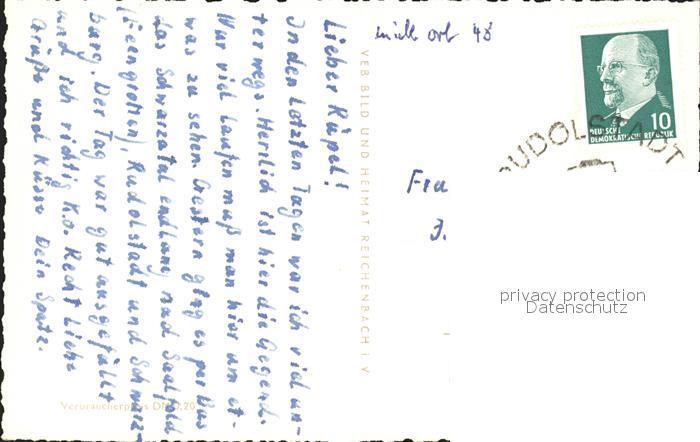 Lieber Rüpel!
In den letzten Tagen war ich viel un-
terwegs. Herrlich ist hier die Gegend.
Nur viel laufen muß man hier um et-
was zu sehen. Gestern ging es per Bus
das Schwarzatal entlang nach Saalfeld
(Feengrotten), Rudolstadt und Schwarz-
burg. Der Tag war gut ausgefüllt
und ich richtig K.o. Recht liebe
Grüße und Küsse Dein Spatz.
VEB BILD UND HEIMAT REICHENBACH i. V.
Verbraucherpreis DM 0,20
ort 48
10
DEUTSCHE
DEMOKRATISCHE REPUBLIK
RUDOLSTADT
Frau
J.
privacy protection
Datenschutz